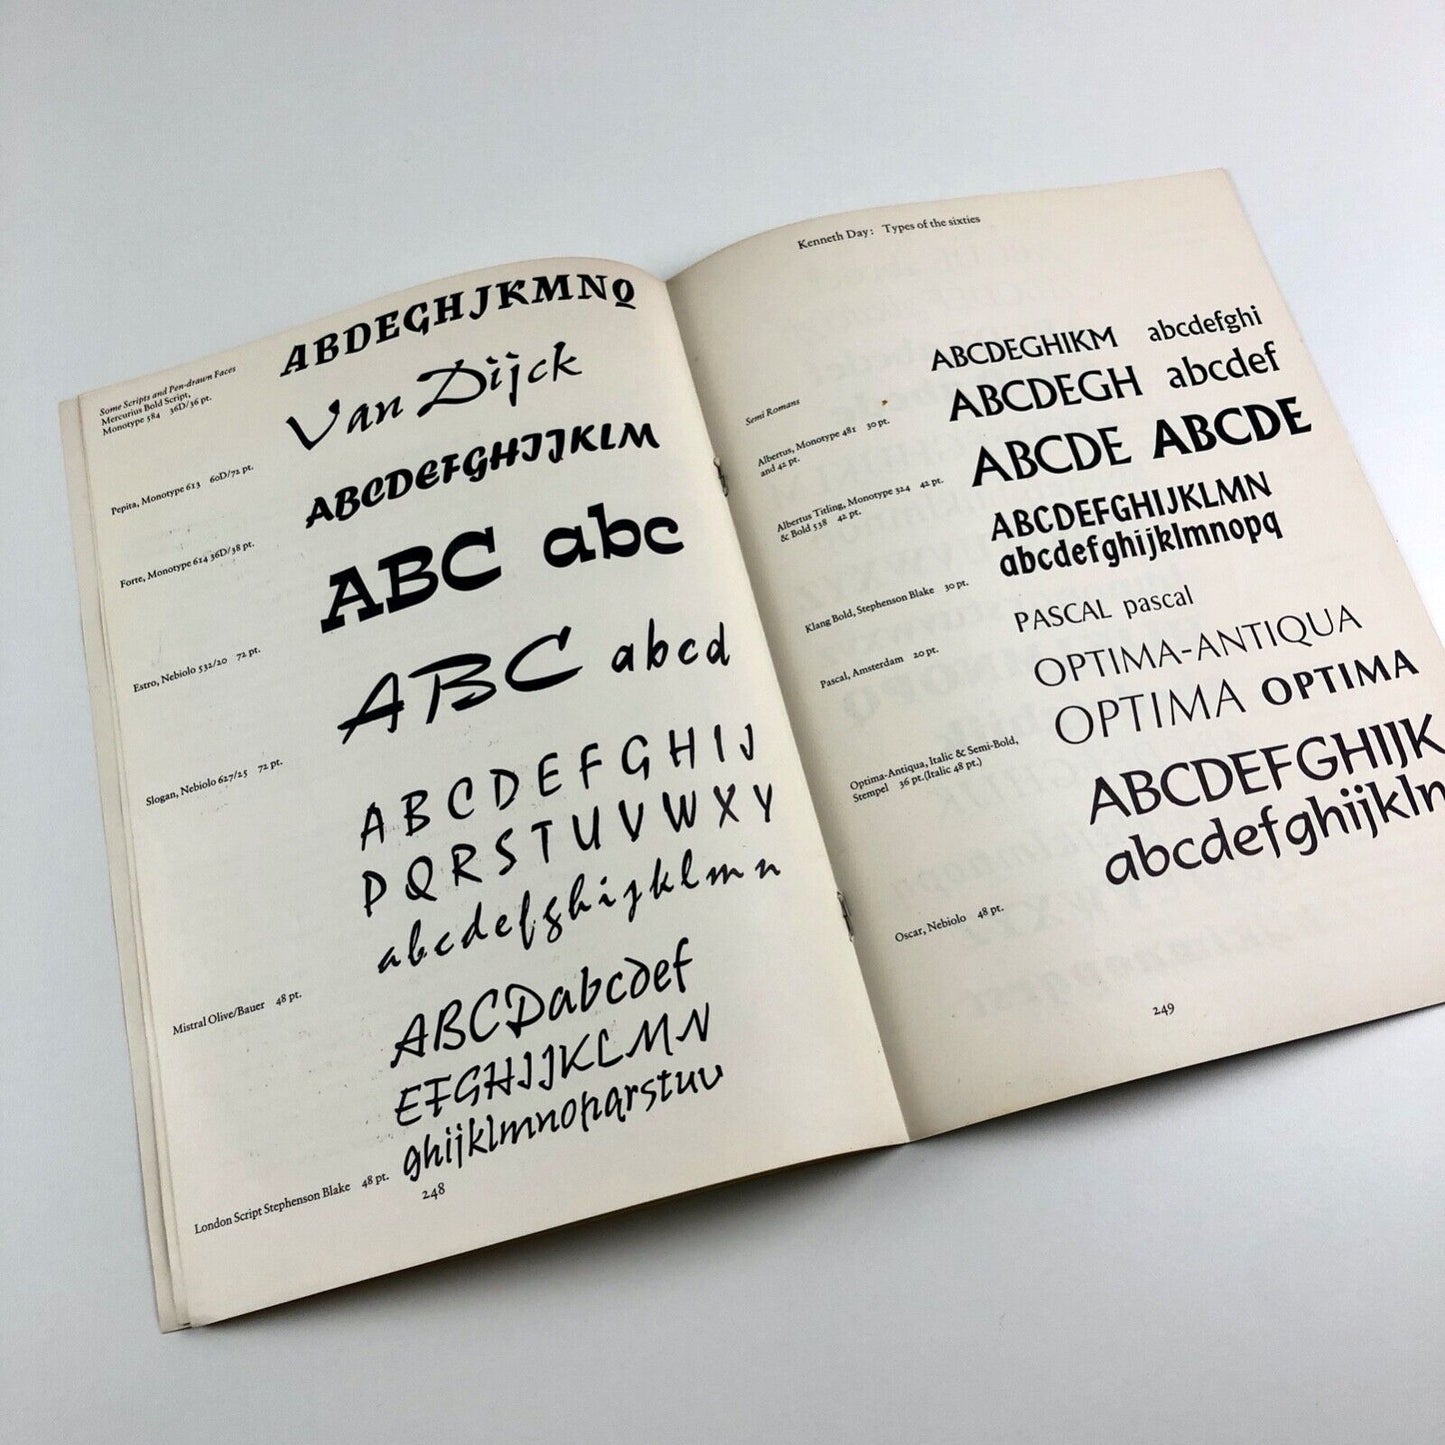 ABDEGHJKMNQ
Some Scripts and Pen-drawn Faces
Mercurius Bold Script,
Monotype 584 36D/36 pt.
Van Dijck
Pepita, Monotype 613 60D/72 pt.
ABCDEFGHIJKLM
Forte, Monotype 614 36D/38 pt.
ABC abc
Estro, Nebiolo 532/20 72 pt.
ABC abcd
Slogan, Nebiolo 627/25 72 pt.
A B C D E F G H I J
P Q R S T U V W X Y
a b c d e f g h i j k l m n
Mistral Olive/Bauer 48 pt.
ABCDabcdef
EFGHIJKLMN
ghijklmnopqrstuv
London Script Stephenson Blake 48 pt.
248
Kenneth Day: Types of the sixties
Semi Romans
ABCDEGHIKM abcdefghi
ABCDEGH abcdef
Albertus, Monotype 481 30 pt.
and 42 pt.
ABCDE ABCDE
Albertus Titling, Monotype 324 42 pt.
& Bold 538 42 pt.
ABCDEFGHIJKLMN
abcdefghijklmnopq
Klang Bold, Stephenson Blake 30 pt.
PASCAL pascal
Pascal, Amsterdam 20 pt.
OPTIMA-ANTIQUA
OPTIMA OPTIMA
Optima-Antiqua, Italic & Semi-Bold,
Stempel 36 pt.(Italic 48 pt.)
ABCDEFGHIJK
abcdefghijkln
Oscar, Nebiolo 48 pt.
249